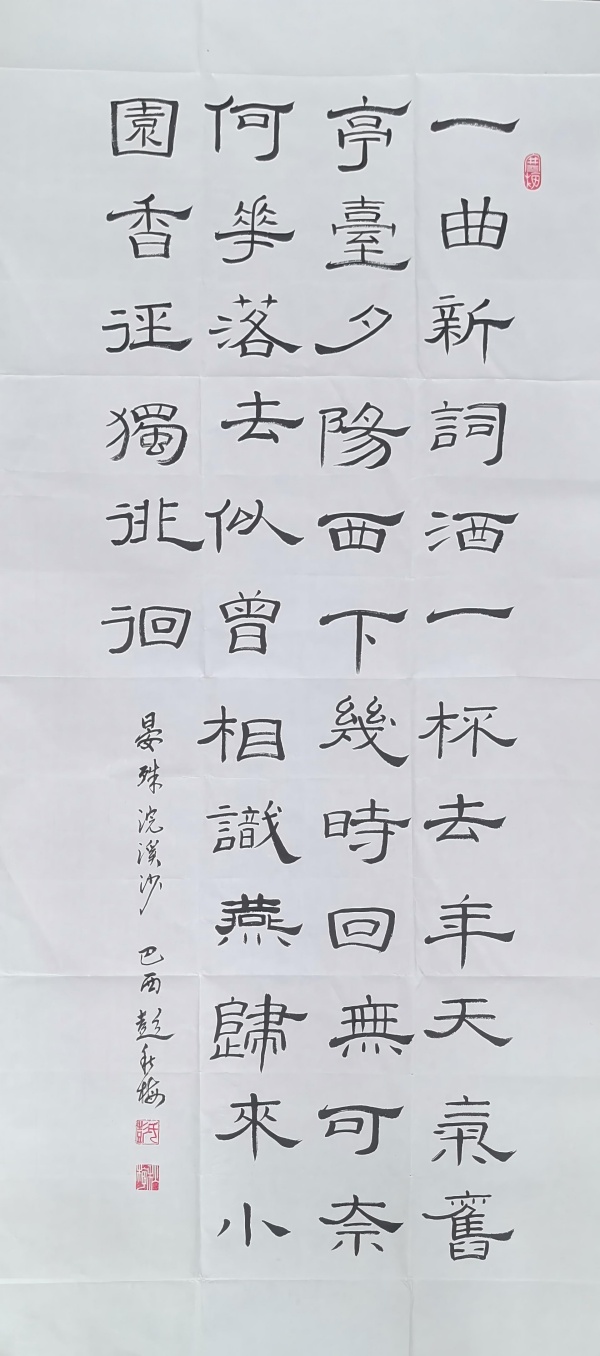 一曲新詞酒一杯去年天氣舊
亭臺夕陽西下幾時回無可奈
何華落去似曾相識燕歸來小
園香徑獨徘徊
晏殊浣溪沙 巴西彭梅